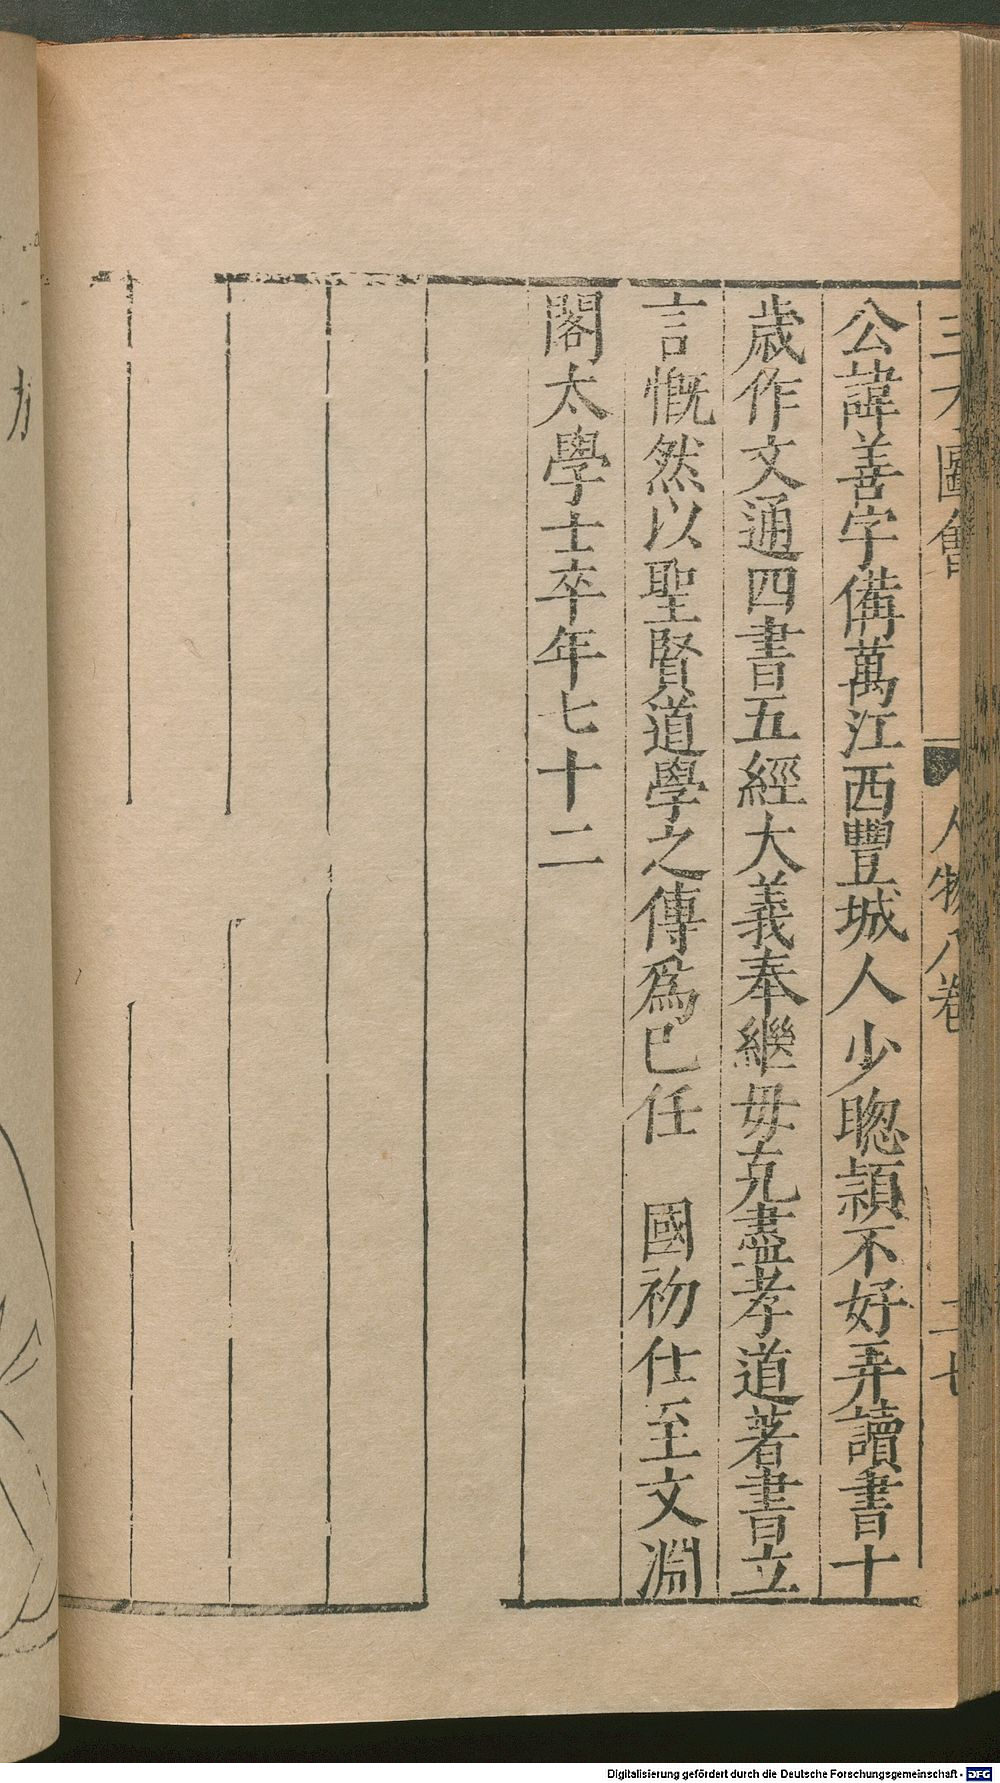 三才圖會 人物八卷 二七
公諱善字備萬江西豐城人少聦頴不好弄讀書十
歲作文通四書五經大義奉繼毋克盡孝道著書立
言慨然以聖賢道學之傳爲已任　國初仕至文淵
閣太學士卒年七十二
Digitalisierung gefördert durch die Deutsche Forschungsgemeinschaft - DFG